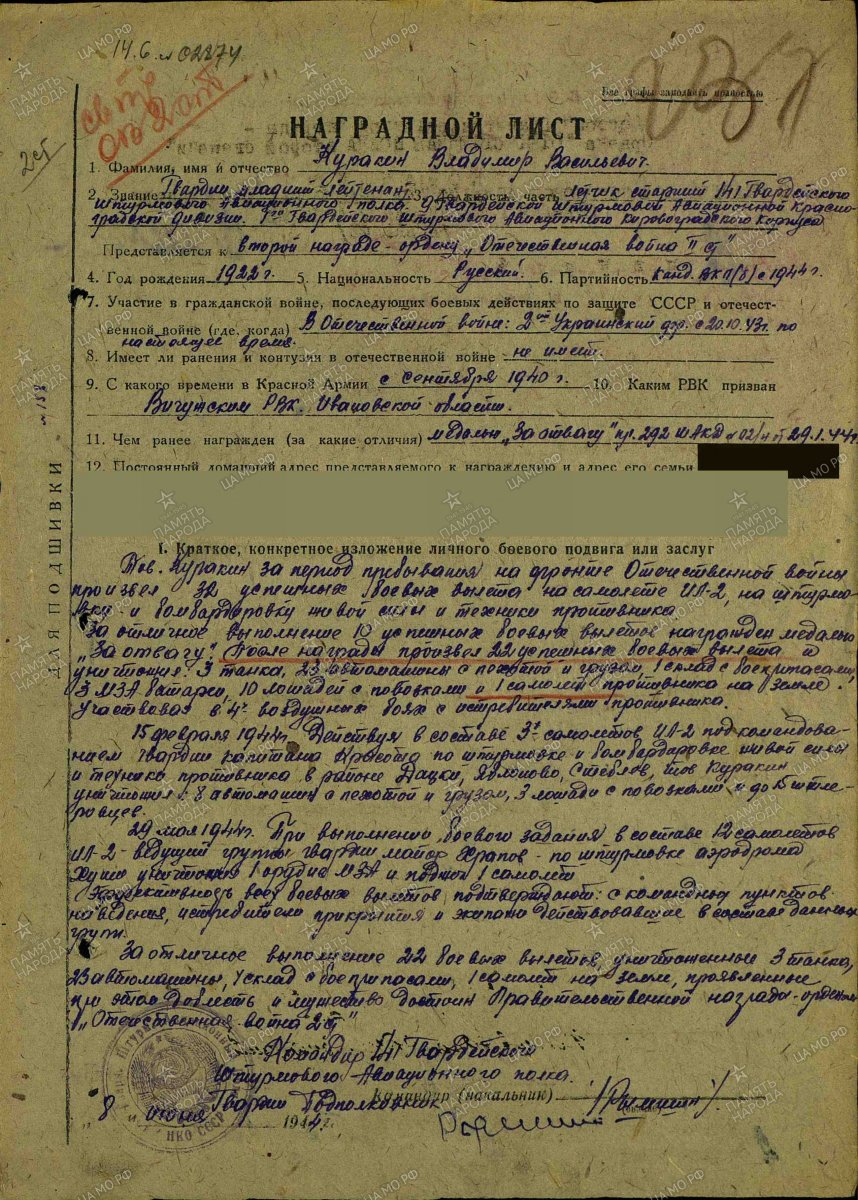 14.6 02874
Все графы заполнять полностью
НАГРАДНОЙ ЛИСТ
1. Фамилия, имя и отчество Куракин Владимир Васильевич.
2. Звание Гвардии младший лейтенант 3. Должность, часть летчик старший 141 Гвардейского
Штурмового Авиационного Полка, Гвардейской Штурмовой Авиационной Красно-
градской дивизии. 1го Гвардейского Штурмового Авиационного Кировоградского Корпуса
Представляется к второй награде - ордену „Отечественная война II ст"
4. Год рождения 1922 г. 5. Национальность Русский. 6. Партийность канд. ВКП(б) с 1944 г.
7. Участие в гражданской войне, последующих боевых действиях по защите СССР и отечест-
венной войне (где, когда) В Отечественной войне: 2ой Украинский фр. с 20.10.43г. по
настоящее время.
8. Имеет ли ранения и контузии в отечественной войне не имеет.
9. С какого времени в Красной Армии с сентября 1940 г. 10. Каким РВК призван
Вичугским РВК. Ивановской области.
11. Чем ранее награжден (за какие отличия) медалью „За отвагу" пр. 292 ШАКД 02/н от 29.1.44г.
12. Постоянный домашний адрес представляемого к награждению и адрес его семьи
ДЛЯ ПОДШИВКИ
I. Краткое, конкретное изложение личного боевого подвига или заслуг
Тов. Куракин за период пребывания на фронте Отечественной войны
произвел 32 успешных боевых вылета на самолете ИЛ-2, на штурмо-
вку и бомбардировку живой силы и техники противника.
За отличное выполнение 10 успешных боевых вылетов награжден медалью
„За отвагу". После награды произвел 22 успешных боевых вылета и
уничтожил: 3 танка, 23 автомашины с пехотой и грузом, 1 склад с боеприпасами,
3 МЗА батареи, 10 лошадей с повозками и 1 самолет противника на земле.
Участвовал в 4х воздушных боях с истребителями противника.
15 февраля 1944г. Действуя в составе 3х самолетов ИЛ-2 под командова-
нием Гвардии капитана по штурмовке и бомбардировке живой силы
и техники противника в районе Дацки, Яблоново, Стеблев, тов Куракин
уничтожил: 8 автомашин с пехотой и грузом, 3 лошади с повозками и до 15 гитле-
ровцев.
29 мая 1944г. При выполнении боевого задания в составе 12 самолетов
ИЛ-2 - ведущий группы гвардии майор Храпов - по штурмовке аэродрома
Хуши уничтожил 1 орудие МЗА и поджег 1 самолет
Эффективность всех боевых вылетов подтверждают: с командных пунктов
наведения, истребители прикрытия и экипажи действовавшие в составе данных
групп.
За отличное выполнение 22 боевых вылетов, уничтоженные 3 танка,
23 автомашины, 1 склад с боеприпасами, 1 самолет на земле, проявленные
при этом доблесть и мужество достоин Правительственной награды - ордена
„Отечественная война 2 ст"
Командир 141 Гвардейского
Штурмового Авиационного полка.
Гвардии Подполковник
Командир (начальник)
„8" июня 1944 г.
НКО СССР
ПАМЯТЬ НАРОДА
ЦА МО РФ